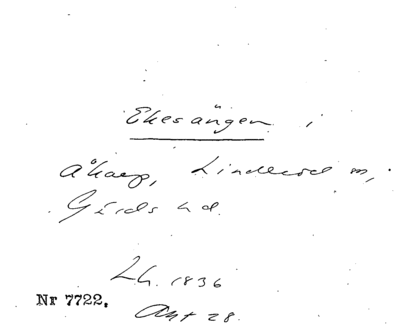 Ekesängen i
Åkarp, Linderöd sn,
Gärds hd.
Lh. 1836
Akt 28.
Nr 7722.